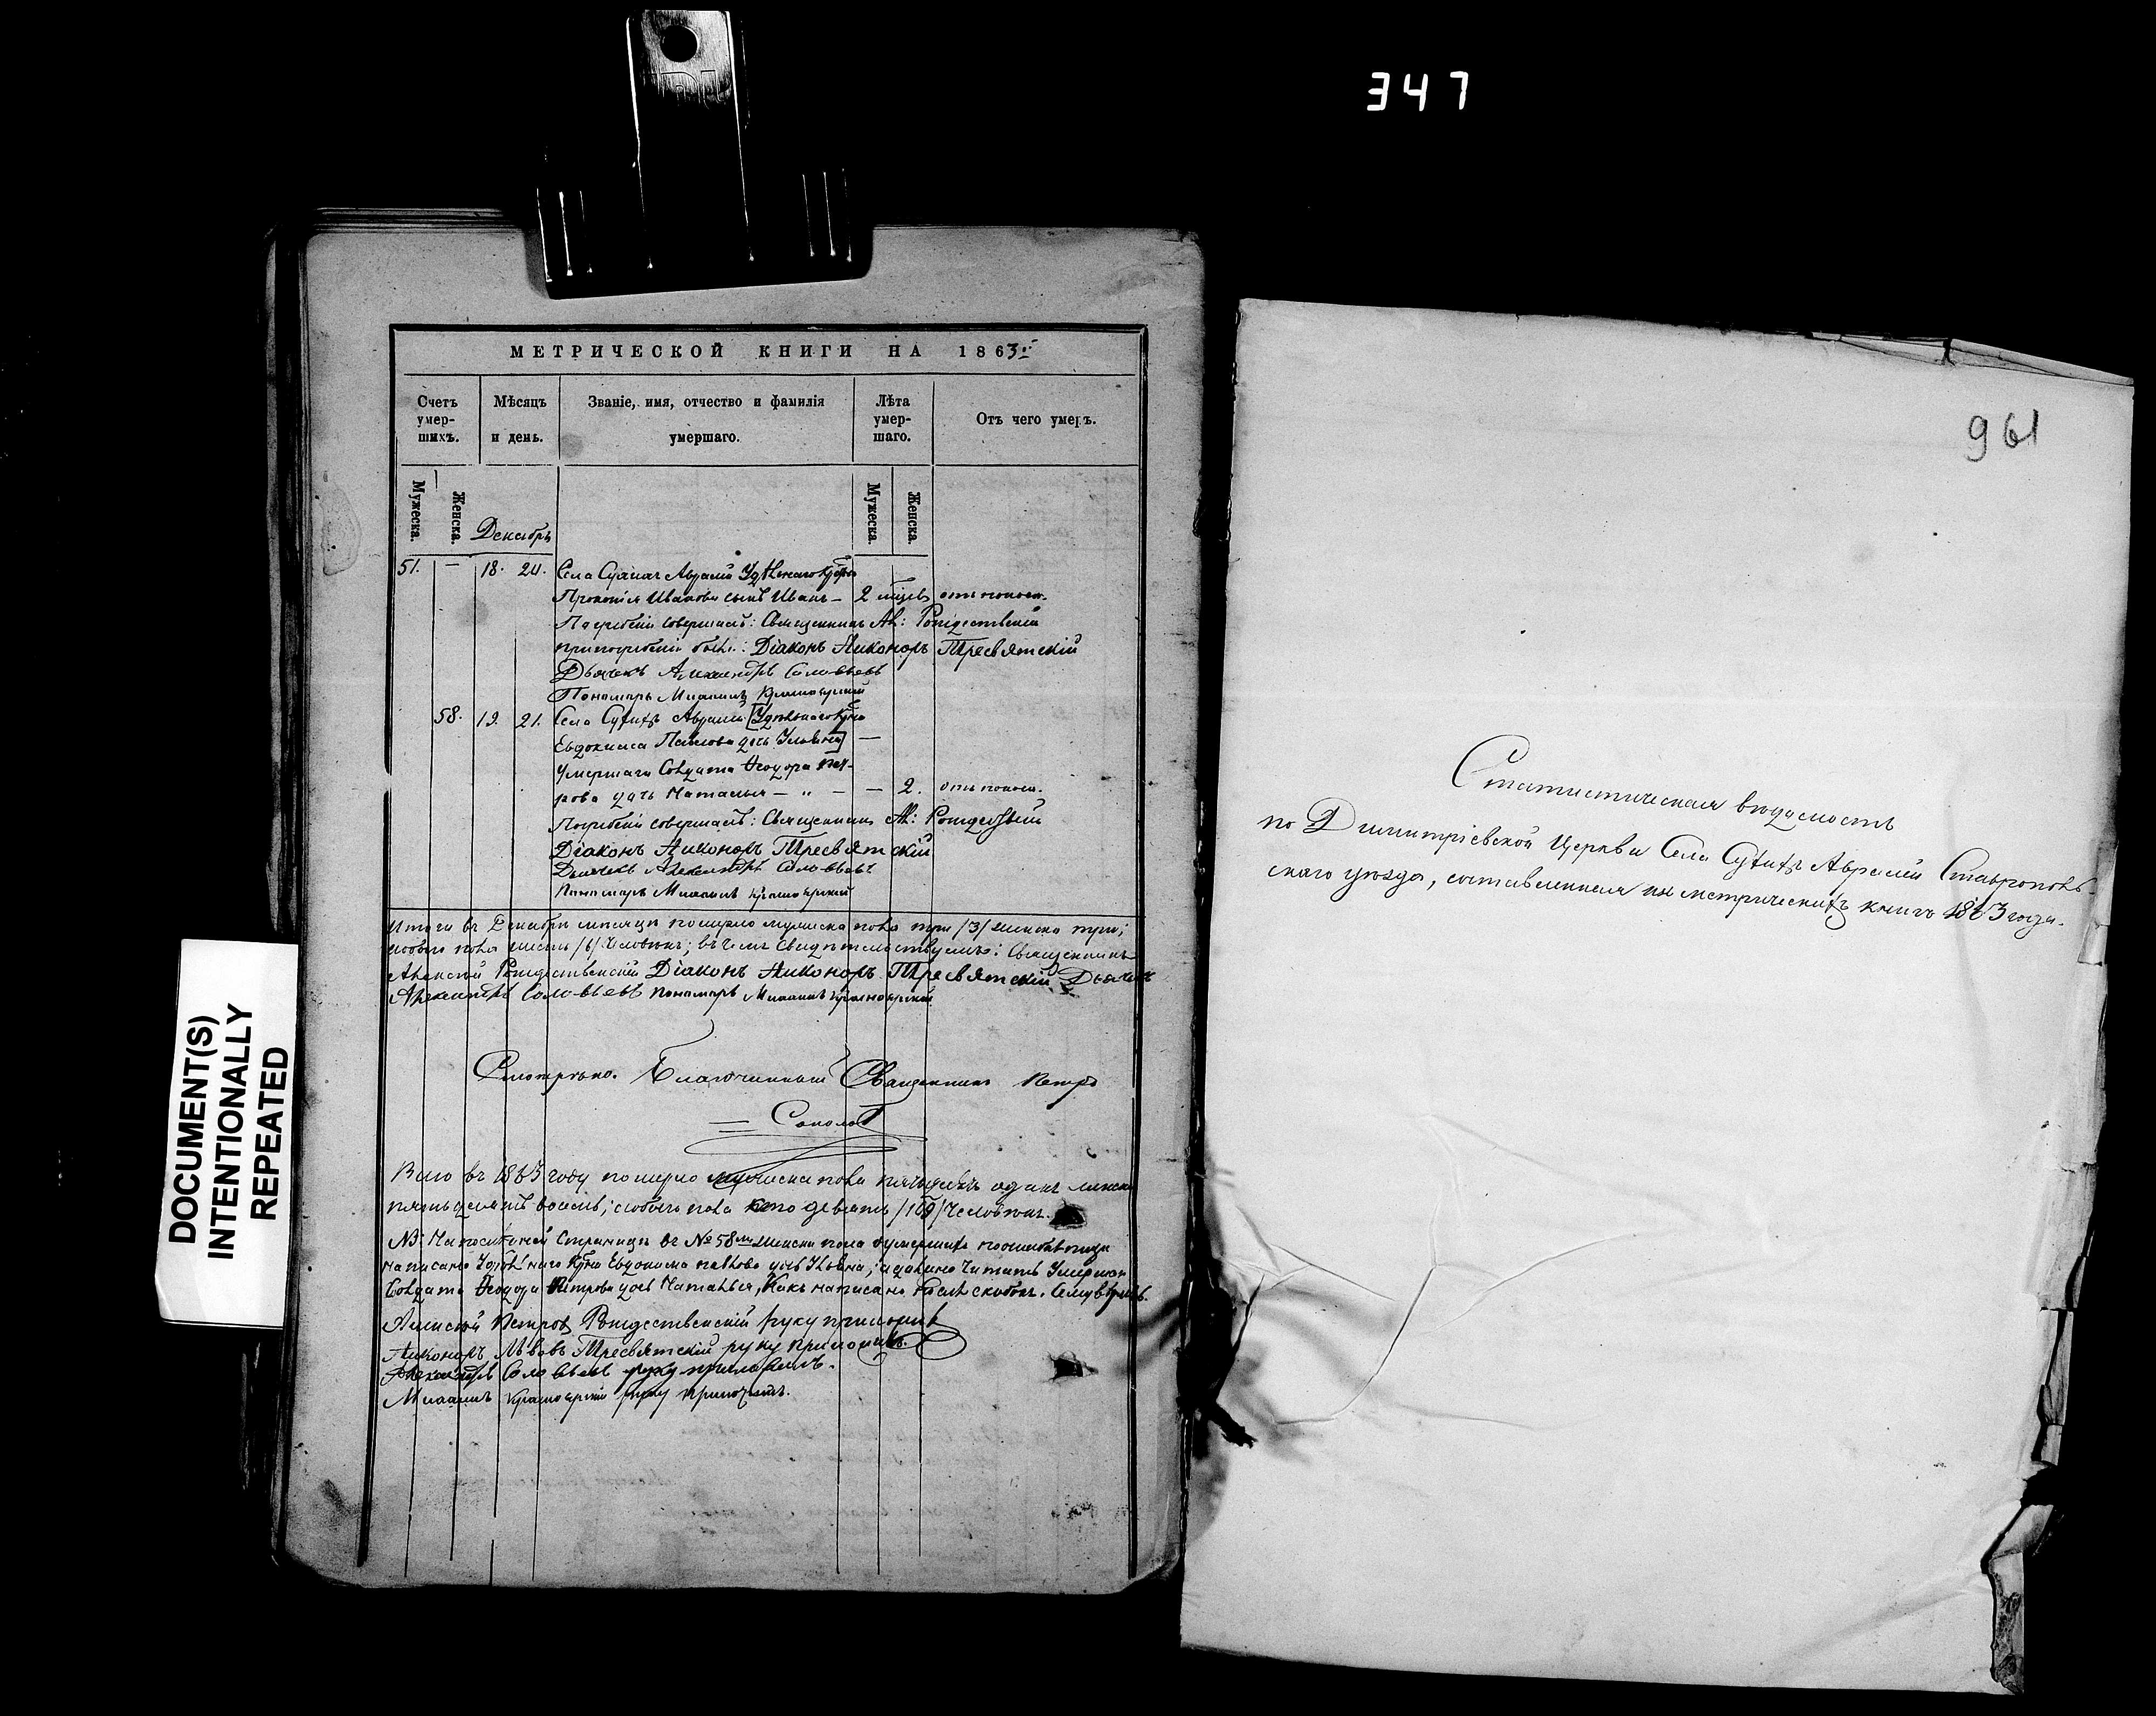 347
МЕТРИЧЕСКОЙ КНИГИ НА 1863й
Счетъ умер-шихъ.
Мѣсяцъ и день.
Званіе, имя, отчество и фамилія умершаго.
Лѣта умер-шаго.
Отъ чего умеръ.
Мужеска.
Женска.
Декабрь
Мужеска.
Женска.
51. — 18. 24. Села Авралей
Прокопія Иванова сынъ Иванъ — 2 отъ поноса.
Погребеніе совершалъ: Священникъ Ал: Рождественскій
при погребеніи были: Діаконъ Никоноръ Тресвятскій
Дьячекъ Александръ Соловьевъ
Пономарь Михаилъ Красноярскій
58. 19. 21. Села Авралей [Удѣльнаго
Евдокима Павлова дочь Ульяна] —
умершаго Солдата Ѳеодора Пет-
рова дочь Наталья — „ — — 2. отъ поноса.
Погребеніе совершалъ: Священникъ Ал: Рождественскій
Діаконъ Никоноръ Тресвятскій
Дьячекъ Александръ Соловьевъ
Пономарь Михаилъ Красноярскій
Итого въ Декабрѣ мѣсяцѣ померло мужеска пола три /3/ женска три;
обоего пола шесть /6/ человѣкъ; въ чемъ свидѣтельствуемъ: Священникъ
Алексѣй Рождественскій Діаконъ Никоноръ Тресвятскій Дьячекъ
Александръ Соловьевъ Пономарь Михаилъ Красноярскій
Смотрѣлъ. Благочинный Священникъ Петръ
Соколовъ
Всего въ 1863 году померло мужеска пола пятьдесятъ одинъ женска
пятьдесятъ восемь; обоего пола сто девять /109/ человѣкъ.
NB: На сей страницѣ въ № 58мъ женска пола умершихъ
написано Евдокима Павлова дочь Ульяна; а должно читать умершаго
Солдата Ѳеодора Петрова дочь Наталья, какъ написано послѣ скобокъ.
Алексѣй Петровъ Рождественскій руку приложилъ
Никоноръ Львовъ Тресвятскій руку приложилъ.
Александръ Соловьевъ руку приложилъ.
Михаилъ Красноярскій руку приложилъ.
DOCUMENT(S)
INTENTIONALLY
REPEATED
961
Статистическая вѣдомость
по Димитріевской Церкви Села Авралей Ставрополь-
скаго уѣзда, составленная изъ метрическихъ книгъ 1863 года.